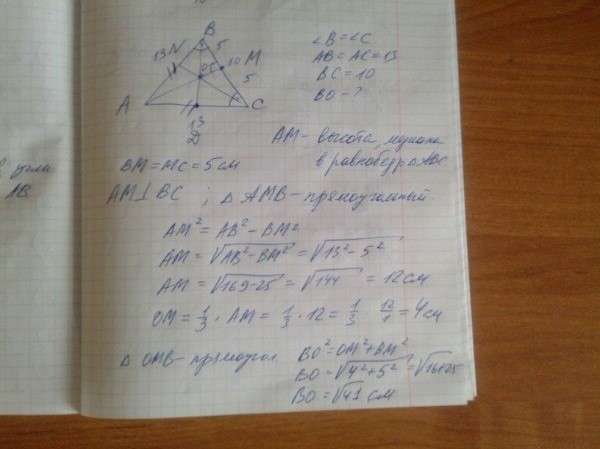 B
N
5
13
10 M
O
5
A
C
13
D
∠B = ∠C
AB = AC = 13
BC = 10
BO - ?
AM - высота, медиана
в равнобедр Δ ABC
BM = MC = 5 см
AM ⊥ BC ; Δ AMB - прямоугольный
AM² = AB² - BM²
AM = √AB² - BM² = √13² - 5²
AM = √169-25 = √144 = 12 см
OM = 1/3 · AM = 1/3 · 12 = 1/3 · 12/1 = 4 см
Δ OMB - прямоугол
BO² = OM² + BM²
BO = √4² + 5² = √16+25
BO = √41 см
угла
AB